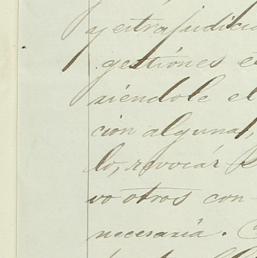 y extrajudicia
gestiones e
ziendole el
cion alguna,
lo, revocár
vo otros con
necesaria.